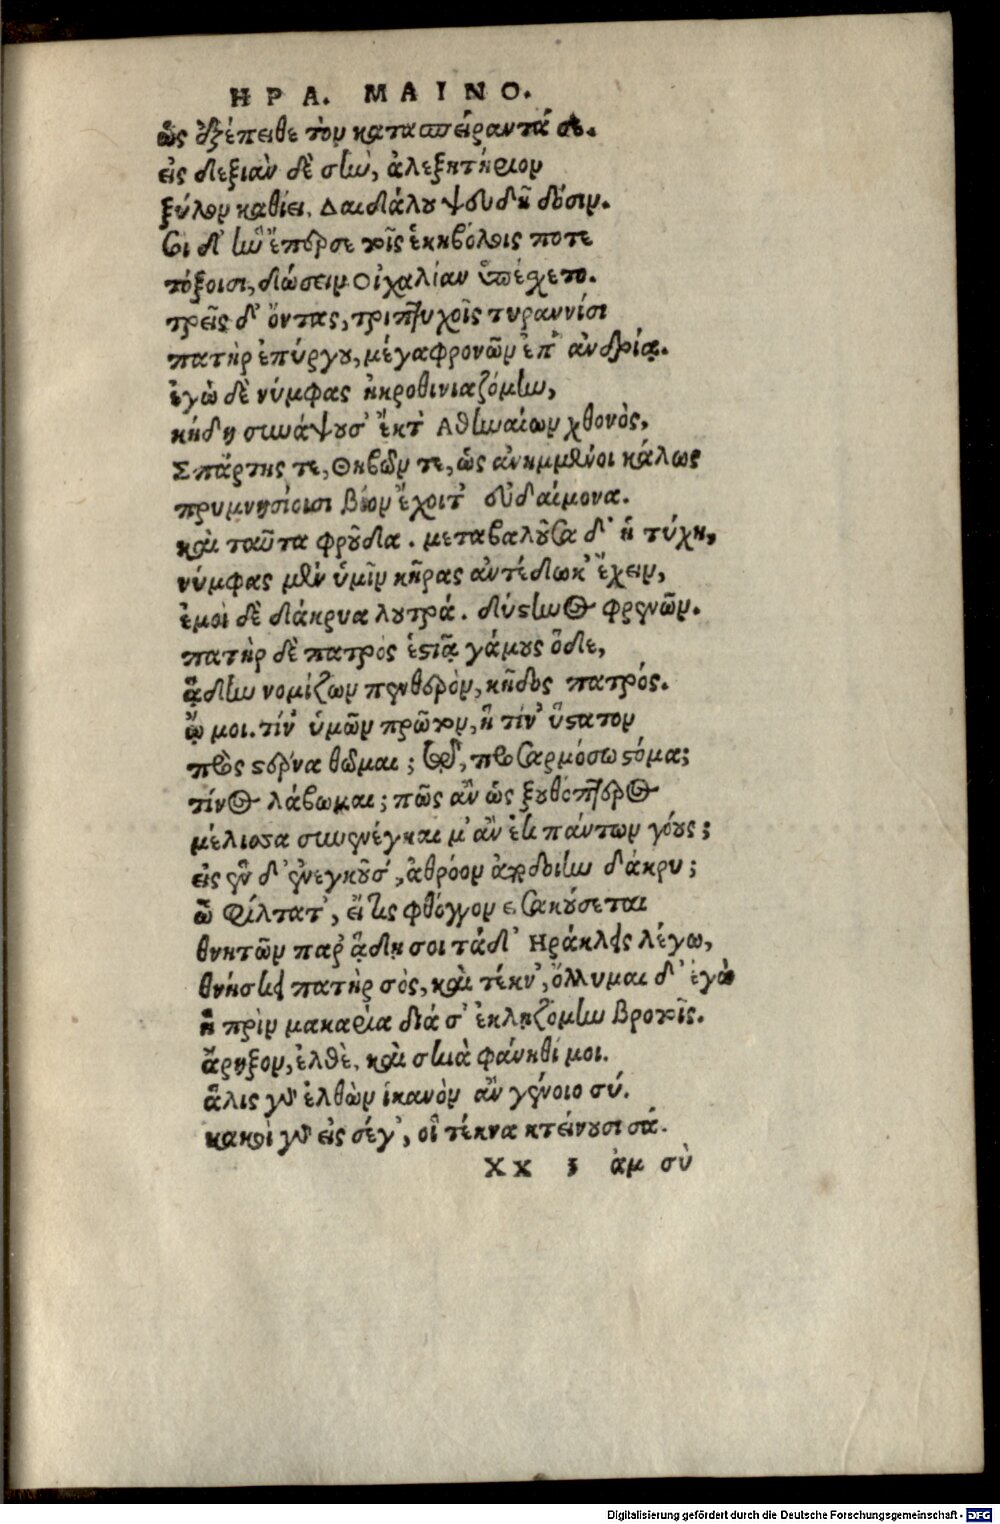 ΗΡΑ. ΜΑΙΝΟ.
ὡς ἐξέπειθε τὸν κατασπείραντά σε.
εἰς δεξιὰν δὲ σὴν, ἀλεξητήριον
ξύλον καθίει, Δαιδάλου ψευδῆ δόσιν.
Σοὶ δ' ἣν ἔπερσε τοῖς ἑκηβόλοις ποτε
τόξοισι, δώσειν Οἰχαλίαν ὑπέσχετο.
τρεῖς δ' ὄντας, τριπτύχοις τυραννίσι
πατὴρ ἐπύργου, μέγα φρονῶν ἐπ' ἀνδρίᾳ.
ἐγὼ δὲ νύμφας ἠκροθινιαζόμην,
κήδη συνάψουσ' ἔκτ' Αθηναίων χθονὸς,
Σπάρτης τε, Θηβῶν τε, ὡς ἀνημμένοι κάλως
πρυμνησίοισι βίον ἔχοιτ' εὐδαίμονα.
καὶ ταῦτα φροῦδα. μεταβαλοῦσα δ' ἡ τύχη,
νύμφας μὲν ὑμῖν κῆρας ἀντέδωκ' ἔχειν,
ἐμοὶ δὲ δάκρυα λουτρά. δύστηνος φρενῶν.
πατὴρ δὲ πατρὸς ἑστιᾷ γάμους ὅδε,
ᾅδην νομίζων πενθερὸν, κῆδος πατρός.
ᾤ μοι. τίν' ὑμῶν πρῶτον, ἢ τίν' ὕστατον
πρὸς στέρνα θῶμαι; τῷ, προσαρμόσω στόμα;
τίνος λάβωμαι; πῶς ἂν ὡς ξουθόπτερος
μέλισσα συνενέγκαιμ' ἂν ἐκ πάντων γόους;
εἰς ἓν δ' ἐνεγκοῦσ', ἀθρόον ἀποδοίην δάκρυ;
ὦ φίλτατ', εἴ τις φθόγγον εἰσακούσεται
θνητῶν παρ' ᾅδῃ σοι τάδ' Ηράκλεις λέγω,
θνήσκει πατὴρ σὸς, καὶ τέκν', ὄλλυμαι δ' ἐγὼ
ἣ πρὶν μακαρία διά σ' ἐκλῃζόμην βροτοῖς.
ἄρηξον, ἐλθὲ, καὶ σκιὰ φάνηθί μοι.
ἅλις γὰρ ἐλθὼν ἱκανὸν ἂν γένοιο σύ.
κακοὶ γὰρ εἰς σέγ', οἳ τέκνα κτείνουσι σά.
XX 3 ἀμ σὺ
Digitalisierung gefördert durch die Deutsche Forschungsgemeinschaft - DFG